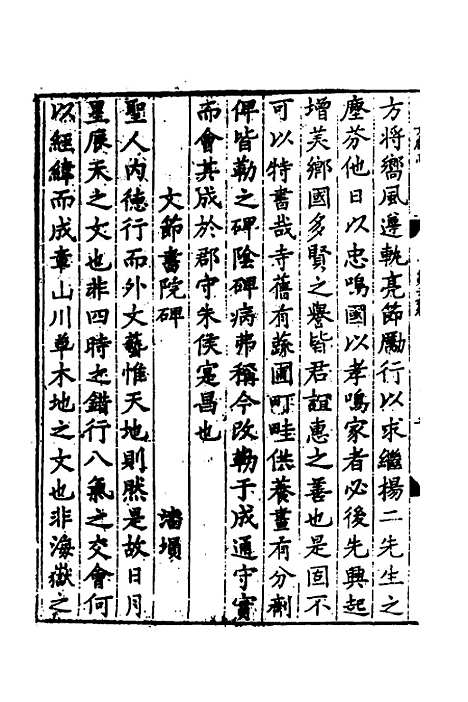 方將嚮風遵軌亮節勵行以求繼楊二先生之
塵芬他日以忠鳴國以孝鳴家者必後先興起
增美鄉國多賢之譽皆君誼惠之善也是固不
可以特書哉寺舊有蔬圃町畦供養晝有分劑
俾皆勒之碑陰碑病弗稱今改勒于成通守實
而會其成於郡守朱侯寔昌也
文節書院碑 潘塤
聖人內德行而外文藝惟天地則然是故日月
星辰天之文也非四時之錯行八氣之交會何
以經緯而成章山川草木地之文也非海嶽之